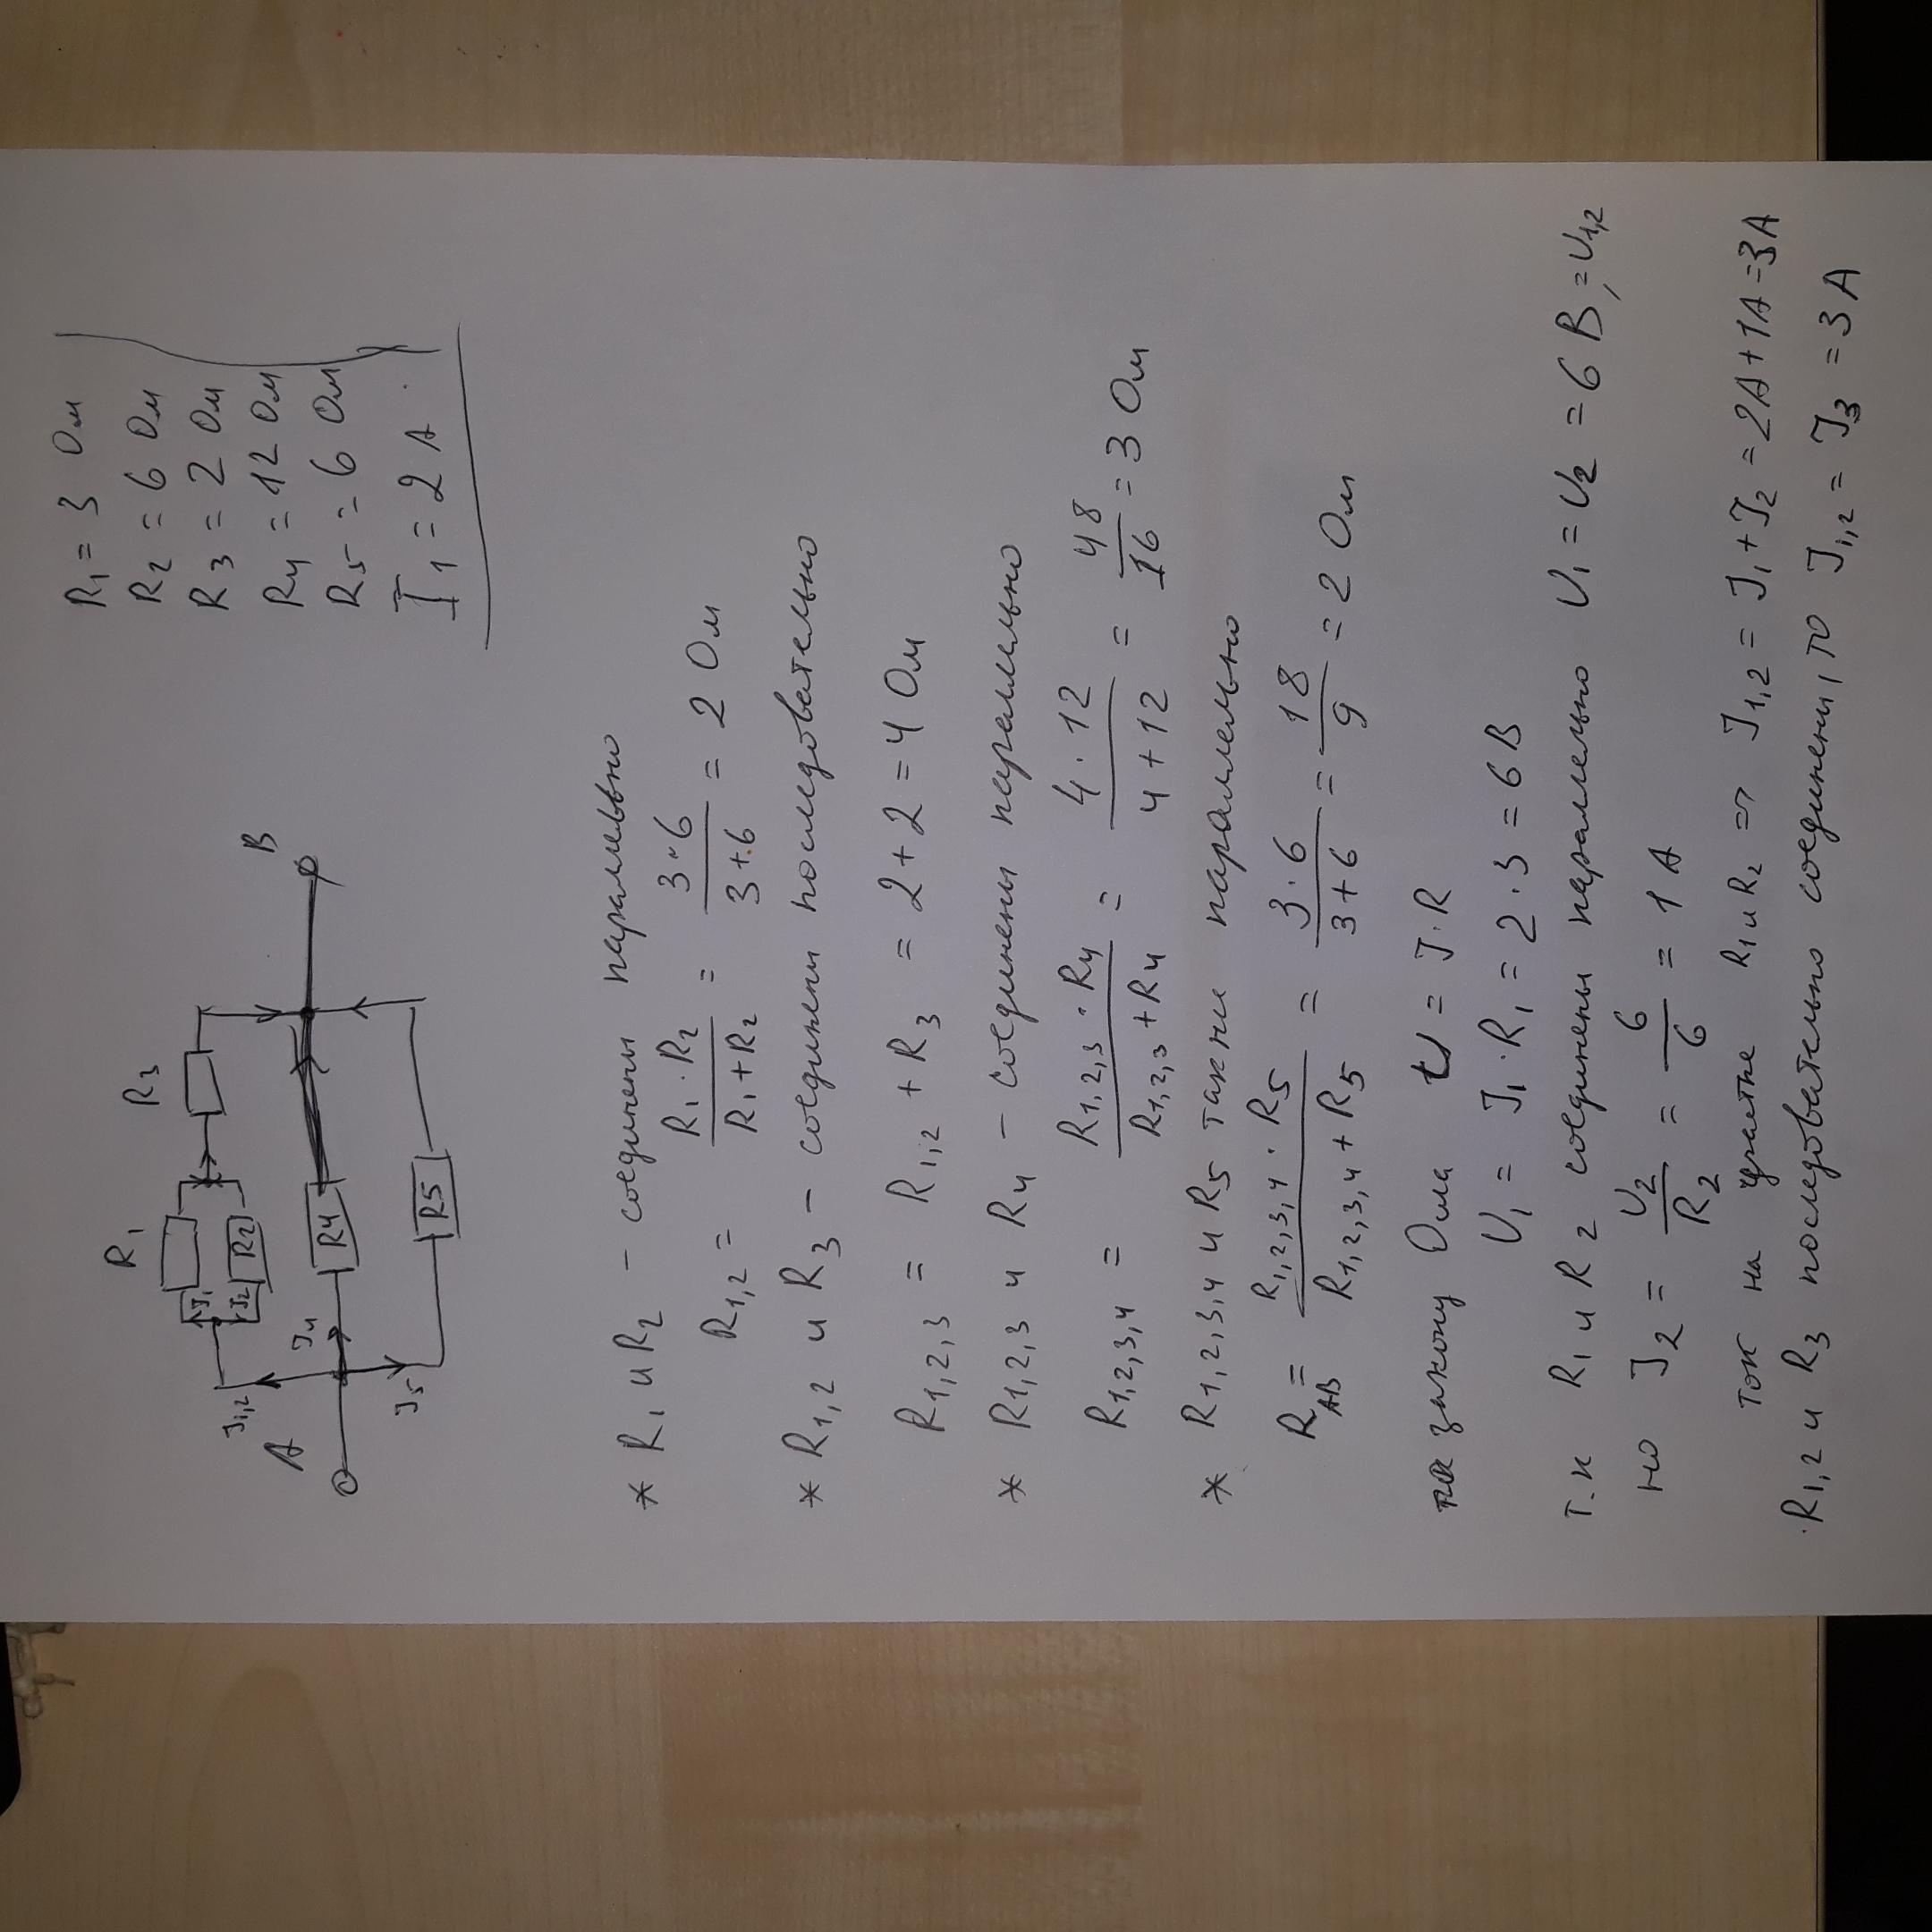 R1 = 3 Ом
R2 = 6 Ом
R3 = 2 Ом
R4 = 12 Ом
R5 = 6 Ом
I1 = 2 А
R1
R3
J1
J2
R2
J1,2
A
B
J4
R4
J5
R5
* R1 и R2 – соединены паралельно
R1,2 = R1 · R2 / R1 + R2 = 3 · 6 / 3 + 6 = 2 Ом
* R1,2 и R3 – соединены последовательно
R1,2,3 = R1,2 + R3 = 2 + 2 = 4 Ом
* R1,2,3 и R4 – соединены паралельно
R1,2,3,4 = R1,2,3 · R4 / R1,2,3 + R4 = 4 · 12 / 4 + 12 = 48 / 16 = 3 Ом
* R1,2,3,4 и R5 также паралельно
RAB = R1,2,3,4 · R5 / R1,2,3,4 + R5 = 3 · 6 / 3 + 6 = 18 / 9 = 2 Ом
по закону Ома U = J · R
U1 = J1 · R1 = 2 · 3 = 6 В
т.к R1 и R2 соединены паралельно U1 = U2 = 6 В, = U1,2
но J2 = U2 / R2 = 6 / 6 = 1 А
ток на участке R1 и R2 => J1,2 = J1 + J2 = 2А + 1А = 3А
R1,2 и R3 последовательно соединены, то J1,2 = J3 = 3 А